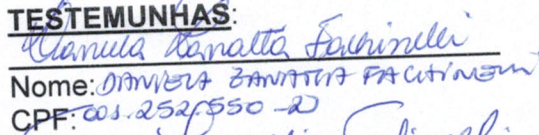 TESTEMUNHAS:
Daniela Zanatta Fachinelli
Nome: DANIELA ZANATTA FACHINELLI
CPF: 001.252.550-20